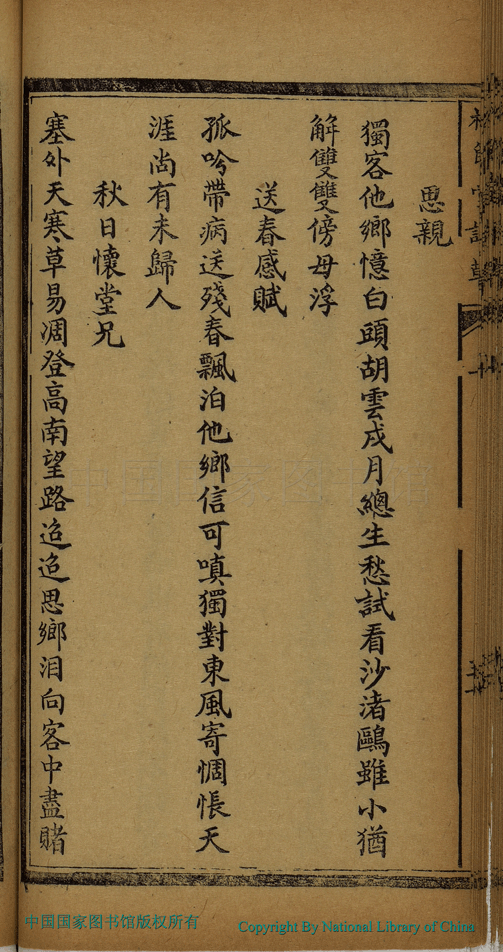 思親
獨客他鄉憶白頭胡雲戍月總生愁試看沙渚鷗雖小猶
解雙雙傍母浮
送春感賦
孤吟帶病送殘春飄泊他鄉信可嗔獨對東風寄惆悵天
涯尚有未歸人
秋日懷堂兄
塞外天寒草易凋登高南望路迢迢思鄉淚向客中盡賭
中国国家图书馆
中国国家图书馆版权所有
Copyright By National Library of China